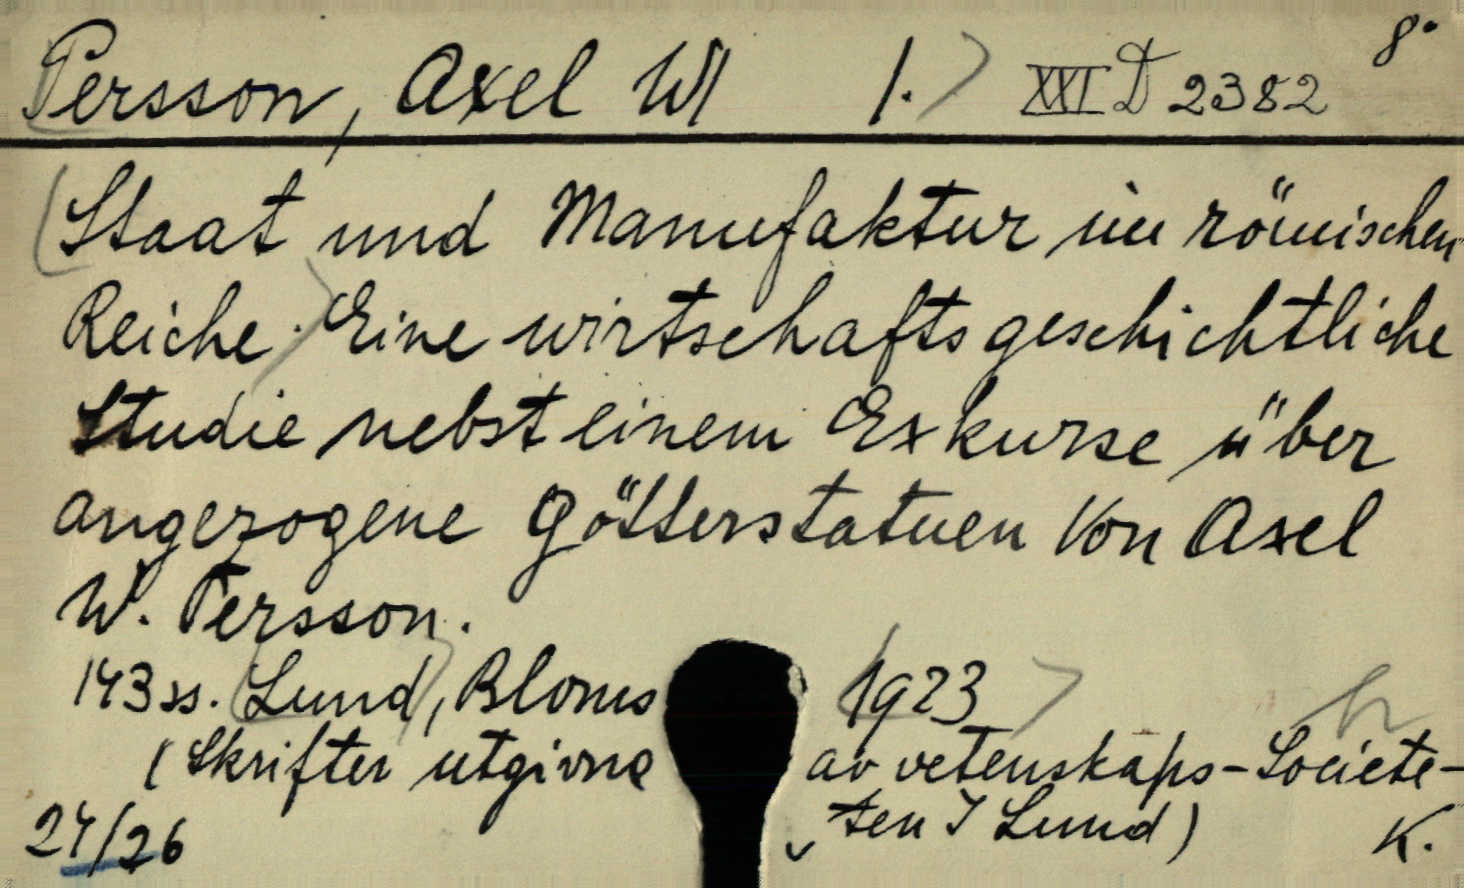 Persson, Axel W 1. XXI D 2382 8°
Staat und Manufaktur im römischen
Reiche. Eine wirtschaftsgeschichtliche
Studie nebst einem Exkurse über
angezogene Götterstatuen Von Axel
W. Persson.
143 ss. Lund, Bloms 1923
(Skrifter utgivna av vetenskaps-Societe-
ten I Lund)
24/26 K.